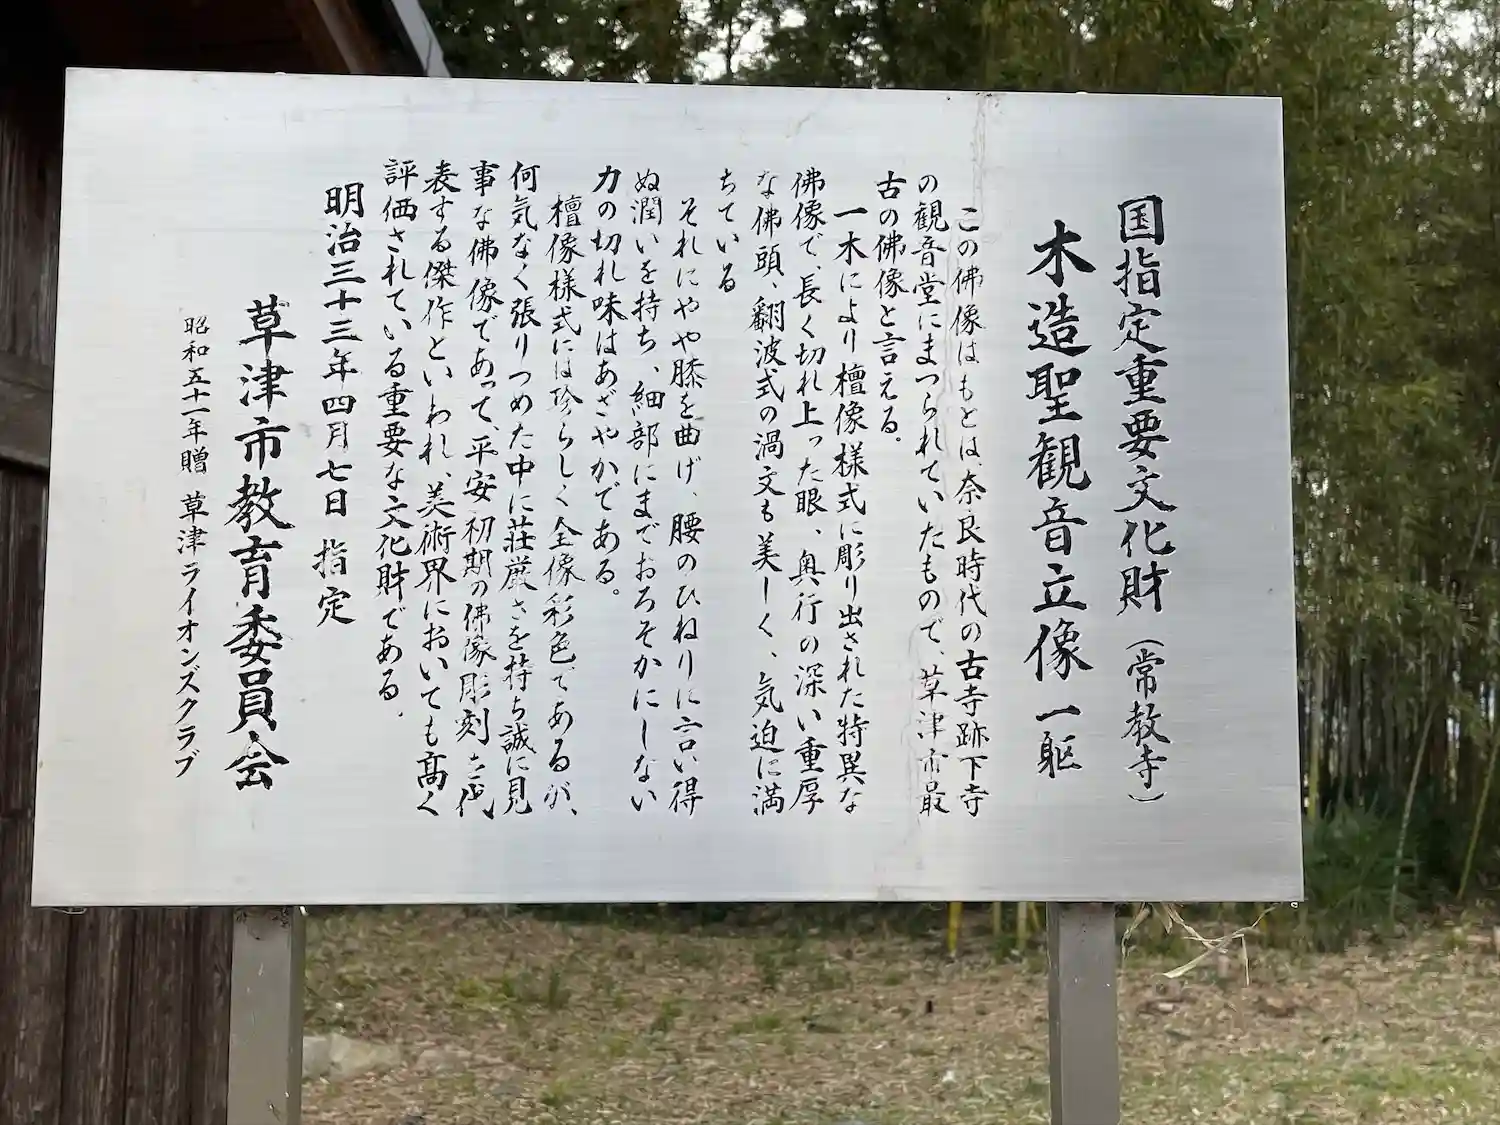 国指定重要文化財（常教寺）
木造聖観音立像 一躯
この佛像はもとは、奈良時代の古寺跡下寺
の観音堂にまつられていたもので、草津市最
古の佛像と言える。
一木により檀像様式に彫り出された特異な
佛像で、長く切れ上った眼、奥行の深い重厚
な佛頭、翻波式の渦文も美しく、気迫に満
ちている
それにやや膝を曲げ、腰のひねりに言い得
ぬ潤いを持ち、細部にまでおろそかにしない
力の切れ味はあざやかである。
檀像様式には珍らしく全像彩色であるが、
何気なく張りつめた中に荘厳さを持ち誠に見
事な佛像であって、平安初期の佛像彫刻を代
表する傑作といわれ、美術界においても高く
評価されている重要な文化財である.
明治三十三年四月七日 指定
草津市教育委員会
昭和五十一年贈 草津ライオンズクラブ